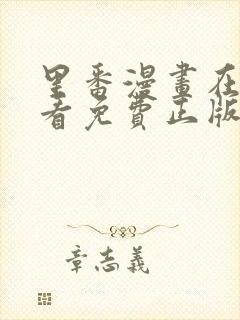 里番漫畫在
看免費正版
章志義